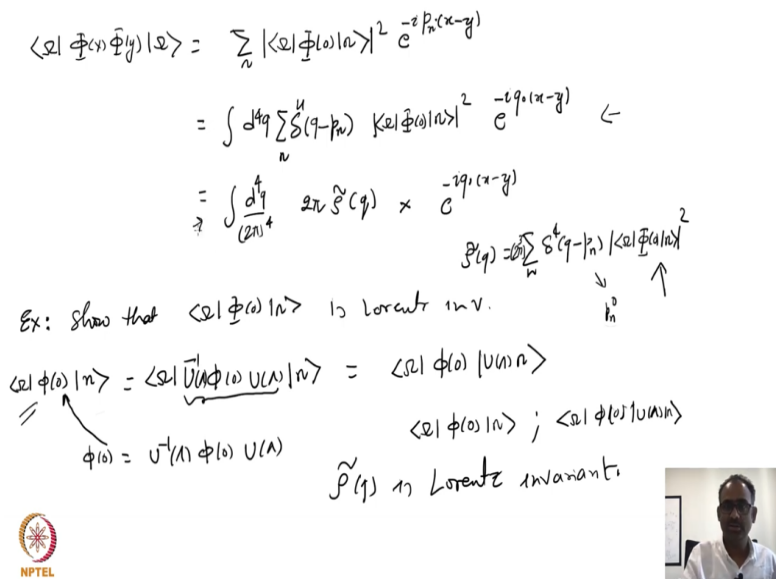 ⟨Ω| Φ(x) Φ(y) |Ω⟩ = Σ_n |⟨Ω| Φ(0) |n⟩|² e^{-i p_n·(x-y)}
= ∫ d⁴q Σ_n δ⁴(q-p_n) |⟨Ω| Φ(0) |n⟩|² e^{-i q·(x-y)} ←
= ∫ d⁴q/(2π)⁴ 2π ρ̃(q) × e^{-i q·(x-y)}
?
ρ̃(q) = (2π)³ Σ_n δ⁴(q-p_n) |⟨Ω| Φ(0) |n⟩|²
p_n⁰
Ex: Show that ⟨Ω| Φ(0) |n⟩ is Lorentz inv.
⟨Ω| ϕ(0) |n⟩ = ⟨Ω| U⁻¹(Λ) ϕ(0) U(Λ) |n⟩ = ⟨Ω| ϕ(0) |U(Λ) n⟩
⟨Ω| ϕ(0) |n⟩ ; ⟨Ω| ϕ(0) |U(Λ) n⟩
ϕ(0) = U⁻¹(Λ) ϕ(0) U(Λ)
ρ̃(q) is Lorentz invariant.
NPTEL